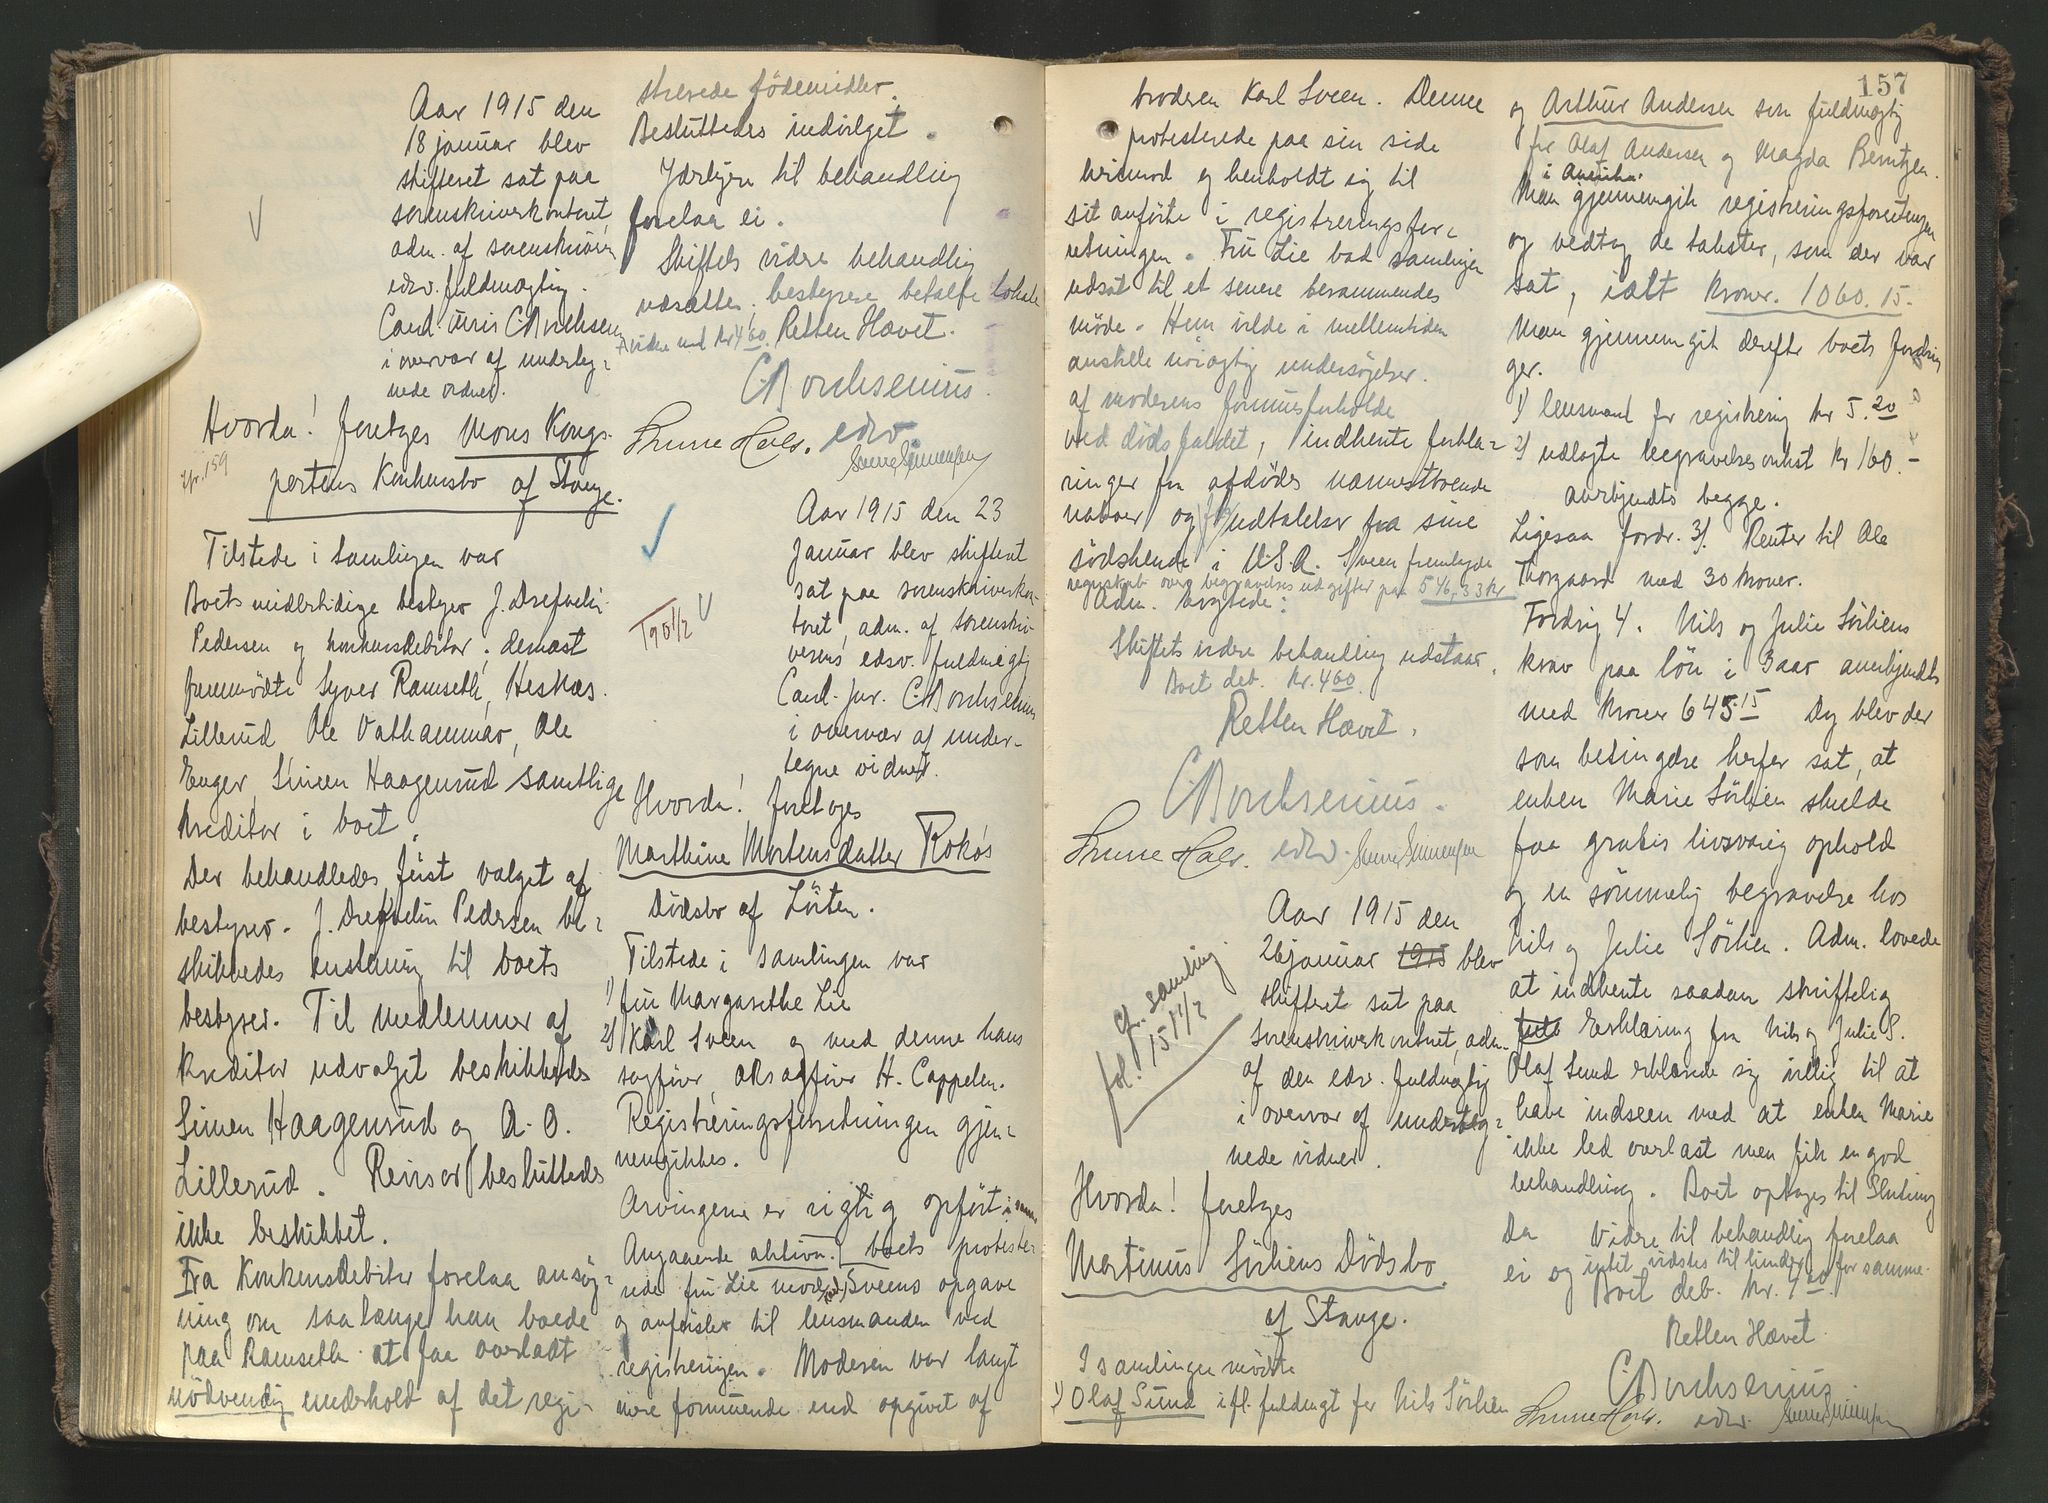 Aar 1915 den
18 januar blev
skifteret sat paa
sorenskriverkontoret,
adm. af sorenskriver
edsv. fuldmægtig.
Cand. juris C. Borchsenius
i overvær af underteg-
nede vidner.
Hvorda! foretoges Mons Kongs-
partens Konkursbo af Stange.
159
Tilstede i samlingen var
Boets midlertidige bestyrer J.
Pedersen og konkursdebitor. dernæst
fremmødte Syver Ramseth, Hesnæs.
Lillerud Ole Vathammar, Ole
Enger, Simen Haagensrud samtlige
kreditor i boet.
Der behandledes først valget af
bestyrer. J. Pedersen be-
skikkedes enstemig til boets
bestyrer. Til medlemmer af
kreditor udvalget beskikkedes
Simen Haagensrud og A. O.
Lillerud. Revisor besluttedes
ikke beskikket.
Fra Konkursdebitor forelaa ansøg-
ning om saalænge han boede
paa Ramseth at faa overladt
nødvendig underhold af det regi-
strerede födemidler.
Besluttedes indvilget.
Yderligere til behandling
forelaa ei.
Skiftets videre behandling
udsættes, bestyrer betalte lokale
videre med kr 4 60. Retten Hævet.
C. Borchsenius.
edsv
Aar 1915 den 23
Januar blev skifteret
sat paa sorenskriverkon-
toret, adm. af sorenskri-
verens edsv. fuldmægtig
Cand. jur. C. Borchsenius
i overvær af under-
tegne vidner.
190 1/2
Hvorda! foretoges
Marthine Mortensdatter Rokos
Dødsbo af Löiten.
Tilstede i samlingen var
1) fru Margarethe Lie
2) Karl Sveen og med denne hans
sagfører, ORsagfører H. Cappelen.
Registreringsforretningen gjen-
nemgikkes.
Arvingerne er rigtig opført
Angaaende aktiva. boets protester-
ede fru Lie mod Sveens opgave
og anförsler til lensmanden ved
registreringen. Moderen var langt
mere formuende end opgivet af
broderen Karl Sveen. Denne
protesterede paa sin side
herimod og henholdt sig til
sit anförte i registreringsfor-
retningen. Fru Lie bad samlingen
udsat til et senere berammendes
møde. Hun vilde i mellemtiden
anstille nöiagtig undersøgelser
af moderens formuesforholde
ved dödsfaldet, indhente forkla-
ringer fra afdödes nærmestboende
naboer og udtalelser fra sine
södskende i U.S.A. Sveen fremlagde
regnskab over begravelses udgifter paa 546,33 kr
Adm. bevgtede:
Skiftets videre behandling udstaar.
Boet deb. kr. 4 60.
Retten Hævet.
C. Borchsenius.
edsv.
Cfr. samling
fol. 151 1/2
Aar 1915 den
26 januar 1915 blev
skifteret sat paa
Sorenskriverkontoret, adm.
af den edsv. fuldmægtig
i overvær af underteg-
nede vidner.
Hvorda! foretoges
Martinus Sörliens Dödsbo
af Stange.
I samlingen mødte
1) Olaf Sund ifl. fuldmagt for Nils Sörlien
157
og Arthur Andersen som fuldmægtig
for Olaf Andersen og Magda Berntzen.
i Amerika.
Man gjennemgik registreringsforretningen
og vedtog de takster, som der var
sat, ialt kroner. 1060.15.
Man gjennemgik derefter boets fordrin
ger.
1) lensmand for registrering kr 5.20
2) udlagte begravelsesomkost kr 160.-
anerkjendts begge.
Ligesaa fordr. 3). Renter til Ole
Thorgaard med 30 kroner.
Fordrig 4. Nils og Julie Sörliens
krav paa lön i 3 aar anerkjendts
med kroner 645.15 Dog blev der
som betingelse herfor sat, at
enken Marie Sörlien skulde
faa gratis livsvarig ophold
og en sömmelig begravelse hos
Nils og Julie Sörlien. Adm. lovede
at indhente saadan skriftelig
Erklæring fra Nils og Julie S.
Olaf Sund erklærede sig villig til at
have indseen med at enken Marie
ikke led overlast men fik en god
behandling. Boet optages til Slutning
Da Videre til behandling forelaa
ei og intet vidstes til hinder for samme.
Boet deb. kr. 4 20.
Retten Hævet.
C. Borchsenius
edsv.